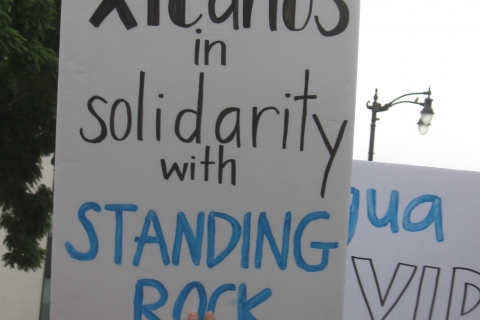 Xicanos
in
solidarity
with
STANDING
ROCK
gua
VID